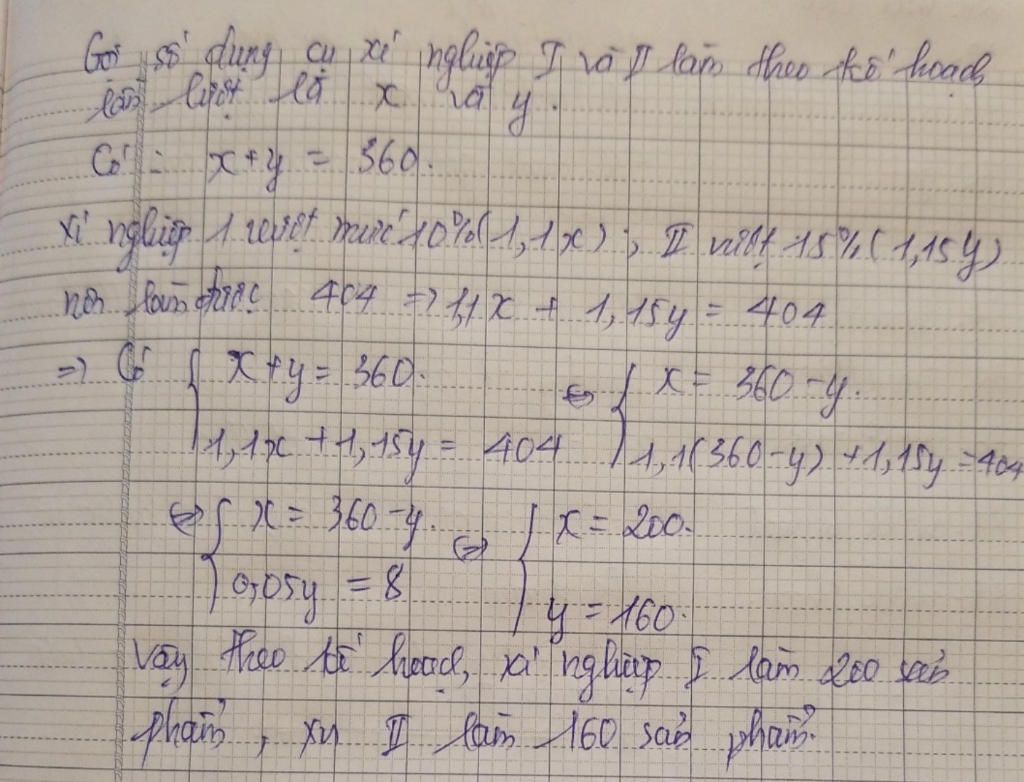 Gọi số dụng cụ xí nghiệp I và II làm theo kế hoạch
lần lượt là x và y.
Có: x+y = 360.
xí nghiệp 1 vượt mức 10% (1,1x), II vượt 15% (1,15y)
nên làm được 404 => 1,1x + 1,15y = 404
=> Có { x+y = 360. <=> { x = 360-y.
1,1x + 1,15y = 404 1,1(360-y) + 1,15y = 404
<=> { x = 360-y. <=> { x = 200.
0,05y = 8 y = 160.
Vậy theo kế hoạch, xí nghiệp I làm 200 sản
phẩm, xn II làm 160 sản phẩm.